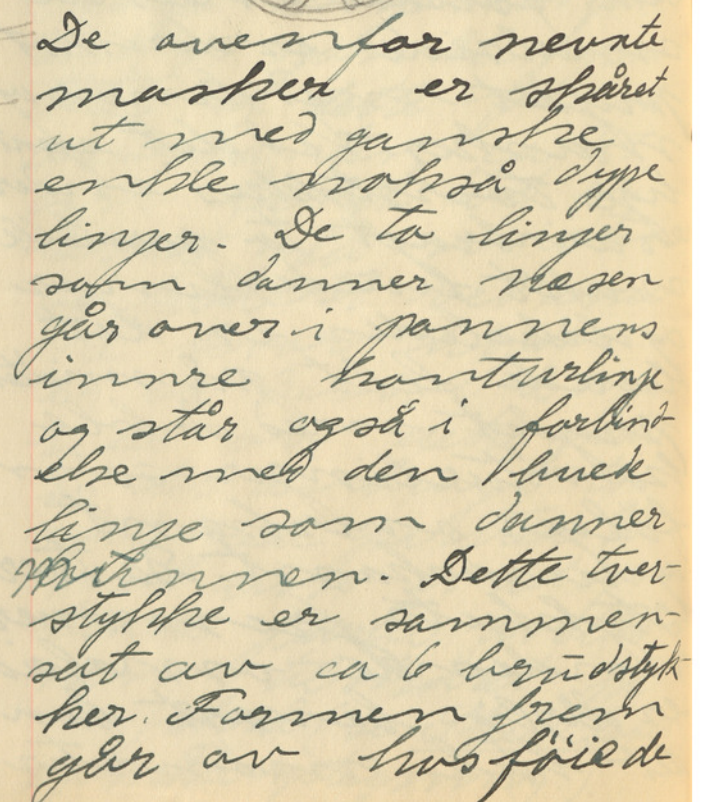 De ovenfor nevnte
masker er skåret
ut med ganske
enkle nokså dype
linjer. De to linjer
som danner næsen
går over i pannens
innre konturlinje
og står også i forbind-
else med den buede
linje som danner
munnen. Dette tver-
stykke er sammen-
sat av ca 6 brudstyk-
ker. Formen frem
går av hosföiede